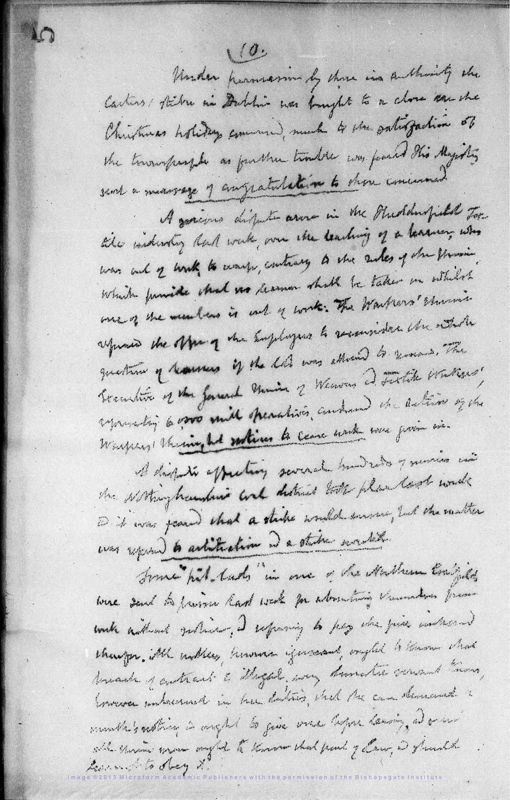 5
10.
Under permission by those in authority the
Carters' strike in Dublin was brought to a close ere the
Christmas holidays commenced, much to the satisfaction of
the townspeople as further trouble was feared His Majesty
sent a message of congratulation to those concerned
A serious dispute arose in the Huddersfield Tex-
tile industry last week, over the teaching of a learner, who
was out of work, to warp, contrary to the rules of the Union,
which provide that no learner shall be taken on whilst
one of the members is out of work. The Warpers' Union
refused the offer of the Employers to reconsider the whole
question of learners if the lad was allowed to remain. The
Executive of the General Union of Weavers and Textile Workers',
representing 6000 mill operatives, endorsed the action of the
Warpers' Union, and notices to cease work were given in.
A dispute affecting several hundreds of miners in
the Nottinghamshire coal district took place last week
& it was feared that a strike would ensue, but the matter
was referred to arbitration and a strike averted.
Some "pit-lads" in one of the Northern Coalfields
were sent to prison last week for absenting themselves from
work without notice, & refusing to pay the fines
therefor. All workers, however ignorant, ought to know that
breach of contract is illegal. Every domestic servant knows,
however in her duties, that she can demand a
month's notice & ought to give one before leaving, and
ought to know that point of Law, & should
learn to obey it.
Image ©2013 Microform Academic Publishers with the permission of the Bishopsgate Institute